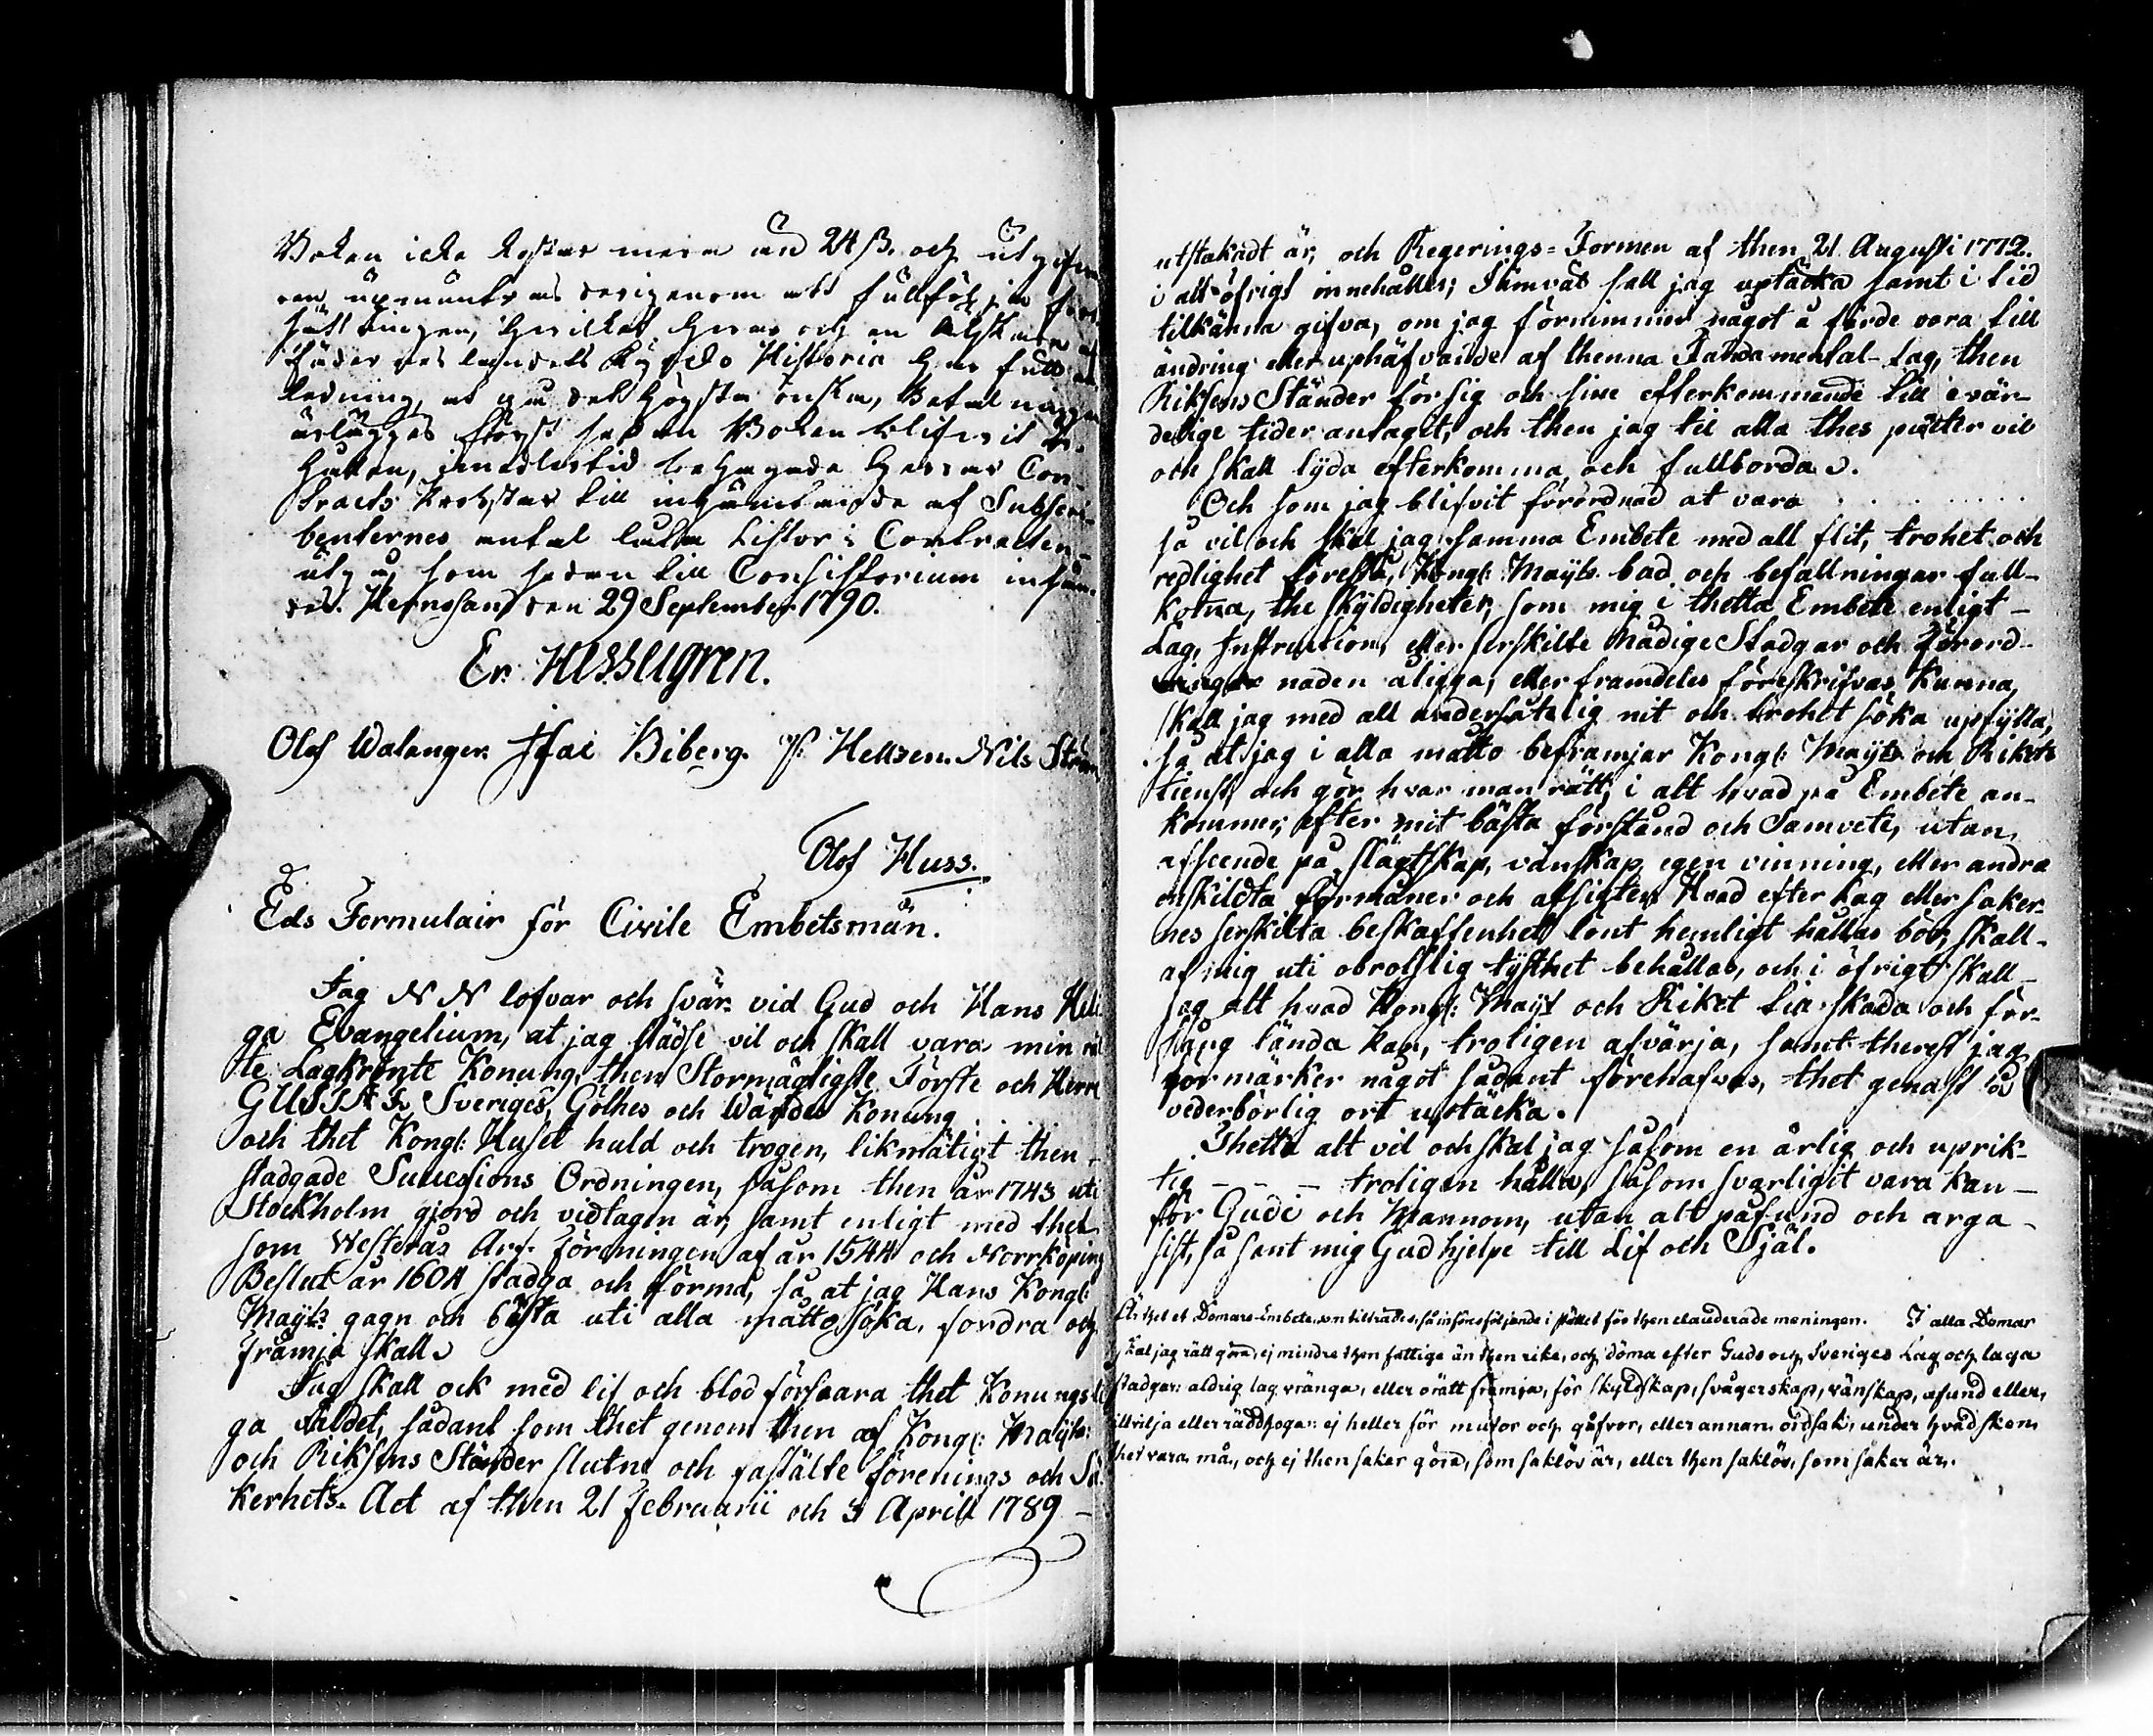 Boken icke kostar mera än 24 ß. och utgifva-
ren upmuntras derigenom att fullfölja fort-
sättningen, hvilket hvar och en älskare af
Fäderneslandets Kyrko Historia har full an-
ledning at på det högsta önska, Betalningen
ärlägges först sedan Boken blifvit er-
hållen, imedlertid behagade Herrar Con-
tracts Prostar till inhämtande af Subscri-
benternes antal låta Listor i Contracten
utgå, som sedan till Consistorium insän-
des. Hernosand den 29 September 1790.
Er. Hesselgren.
Olof Walanger. Isac Biberg. P. Hellzen. Nils Ström
Olof Huss.
Eds Formulair för Civile Embetsmän.
Jag N N lofvar och svär vid Gud och Hans Heli-
ga Evangelium, at jag städse vil och skall vara min rät-
te Lagkrönte Konung, then Stormägtigste Förste och Herre
GUSTAF Sveriges, Göthes och Wändes Konung . . . .
och thet Kongl: Huset huld och trogen, likmätigt then
stadgade Successions Ordningen, såsom then år 1743 uti
Stockholm gjord och vidtagen är, samt enligt med thet
som Westerås Arf-föreningen af år 1544 och Norrköpings
Beslut år 1604 stadga och förmå, så at jag Hans Kongl:
Maÿts gagn och bästa uti alla måtto söka, fordra och
främja skall.
Jag skall ock med lif och blod försvara thet Konungsli-
ga väldet, sådant som thet genom then af Kongl: Maÿts:
och Riksens Ständer slutne och fastälte förenings och Sä-
kerhets-Act af then 21 Februarii och 3 Aprill 1789 -
utstakadt är, och Regerings-Formen af then 21 Augusti 1772.
i alt öfrigt innehåller; Jämväl skall jag uptäcka samt i tid
tilkänna gifva, om jag förnimmer något å färde vara till
ändring eller uphäfvande af thenna Fundamental-Lag, then
Riksens Ständer för sig och sine efterkommande till evär-
delige tider antagit, och then jag til alla thes puncter vil
och skall lyda efterkomma och fullborda.
Och som jag blifvit förordnad at vara . . . . . . . .
så vil och skal jag samma Embete med all flit, trohet och
redlighet förestå, Kongl: Maÿts bud och befallningar full-
komna, the skyldigheter, som mig i thetta Embete enligt -
Lag, Instruction, eller serskilte Nådige Stadgar och Förord-
naden åligga, eller framdeles föreskrifvas kunna,
skall jag med all undersåtelig nit och trohet söka upfylla,
så at jag i alla måtto befrämjar Kongl: Maÿts och Rikets
tienst, och gör hvar man rätt, i alt hvad på Embete an-
kommer, efter mit bästa förstånd och Samvete, utan
afseende på slägtskap, vänskap, egen vinning, eller andra
enskildta förmåner och afsigter. Hvad efter Lag eller saker-
nes serskilta beskaffenhet lönt hemligt hållas bör, skall -
af mig uti obrotslig tysthet behållas, och i öfrigt skall -
jag alt hvad Kongl: Maÿt och Riket till skada och för-
fång lända kan, troligen afvärja, samt therest jag
förmärker något sådant förehafvas, thet genast å
vederbörlig ort uptäcka.
Thetta alt vil och skal jag såsom en ärlig och uprik-
tig - - - troligen hålla, såsom svarligit vara kan -
för Gudi och Mannom, utan alt påfund och arga -
list, så sant mig Gud hjelpe till Lif och Själ.
Är thet et Domare-Embete, som tilträdes, så införes följande i stället för then clauderade meningen. I alla Domar
skal jag rätt göra, ej mindre then fattige än then rike, och döma efter Guds och Sveriges Lag och laga
stadgar: aldrig lag vränga, eller orätt främja, för skyldskap, svågerskap, vänskap, afund eller,
illvilja eller räddhoga: ej heller för mutor och gåfvor, eller annan ordsak, under hvad sken
thet vara må, och ej then saker göra, som saklös är, eller then saklös, som saker är.